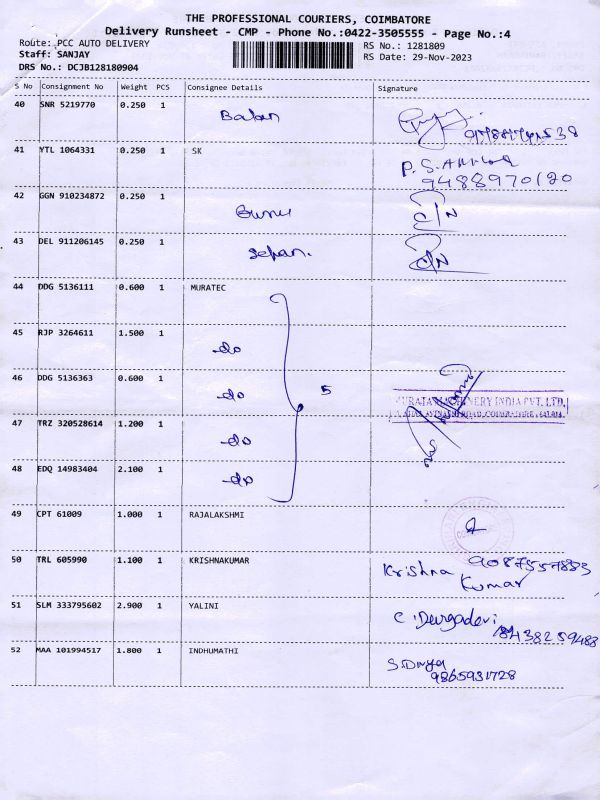 THE PROFESSIONAL COURIERS, COIMBATORE
Delivery Runsheet - CMP - Phone No.:0422-3505555 - Page No.:4
Route: PCC AUTO DELIVERY RS No.: 1281809
Staff: SANJAY RS Date: 29-Nov-2023
DRS No.: DCJB128180904
S No Consignment No Weight PCS Consignee Details Signature
40 SNR 5219770 0.250 1 Balan
41 YTL 1064331 0.250 1 SK
9488970120
42 GGN 910234872 0.250 1 C/N
43 DEL 911206145 0.250 1 C/N
44 DDG 5136111 0.600 1 MURATEC
45 RJP 3264611 1.500 1 -do
46 DDG 5136363 0.600 1 -do 5
47 TRZ 320528614 1.200 1 -do
48 EDQ 14983404 2.100 1 -do
49 CPT 61009 1.000 1 RAJALAKSHMI
50 TRL 605990 1.100 1 KRISHNAKUMAR Krishna Kumar
51 SLM 333795602 2.900 1 YALINI C. Durgadevi
8438259488
52 MAA 101994517 1.800 1 INDHUMATHI S.Divya
9865931728